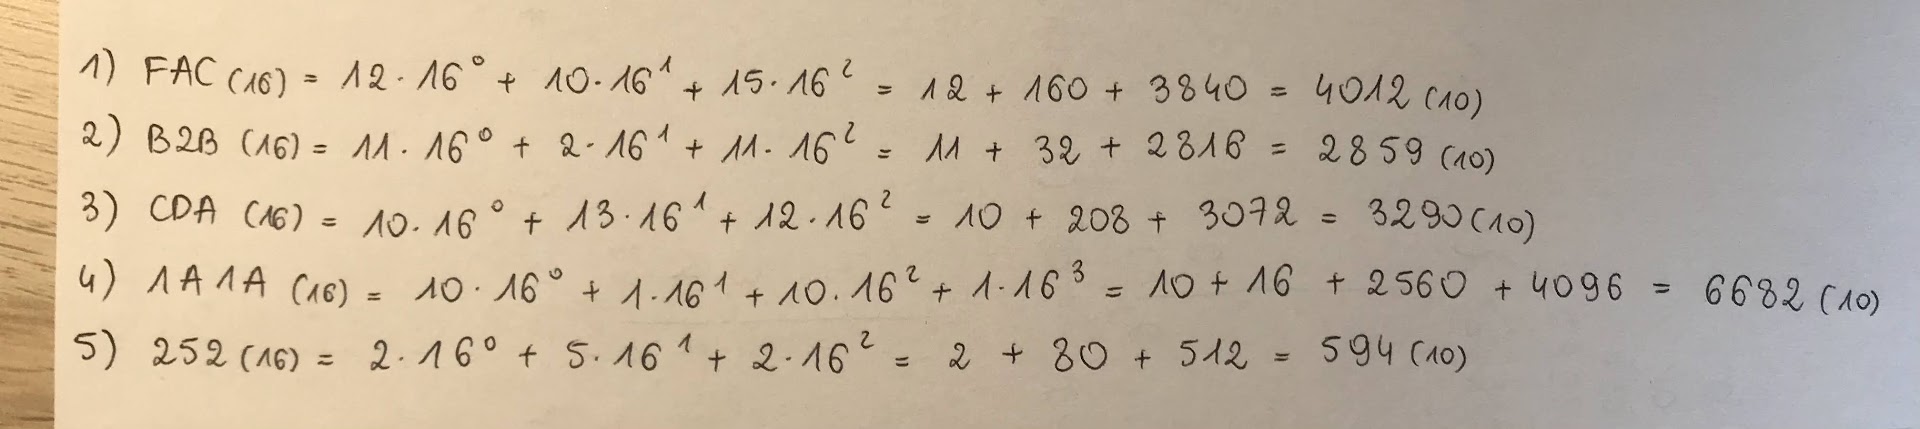 1) FAC (16) = 12 · 16⁰ + 10 · 16¹ + 15 · 16² = 12 + 160 + 3840 = 4012 (10)
2) B2B (16) = 11 · 16⁰ + 2 · 16¹ + 11 · 16² = 11 + 32 + 2816 = 2859 (10)
3) CDA (16) = 10 · 16⁰ + 13 · 16¹ + 12 · 16² = 10 + 208 + 3072 = 3290 (10)
4) 1A1A (16) = 10 · 16⁰ + 1 · 16¹ + 10 · 16² + 1 · 16³ = 10 + 16 + 2560 + 4096 = 6682 (10)
5) 252 (16) = 2 · 16⁰ + 5 · 16¹ + 2 · 16² = 2 + 80 + 512 = 594 (10)